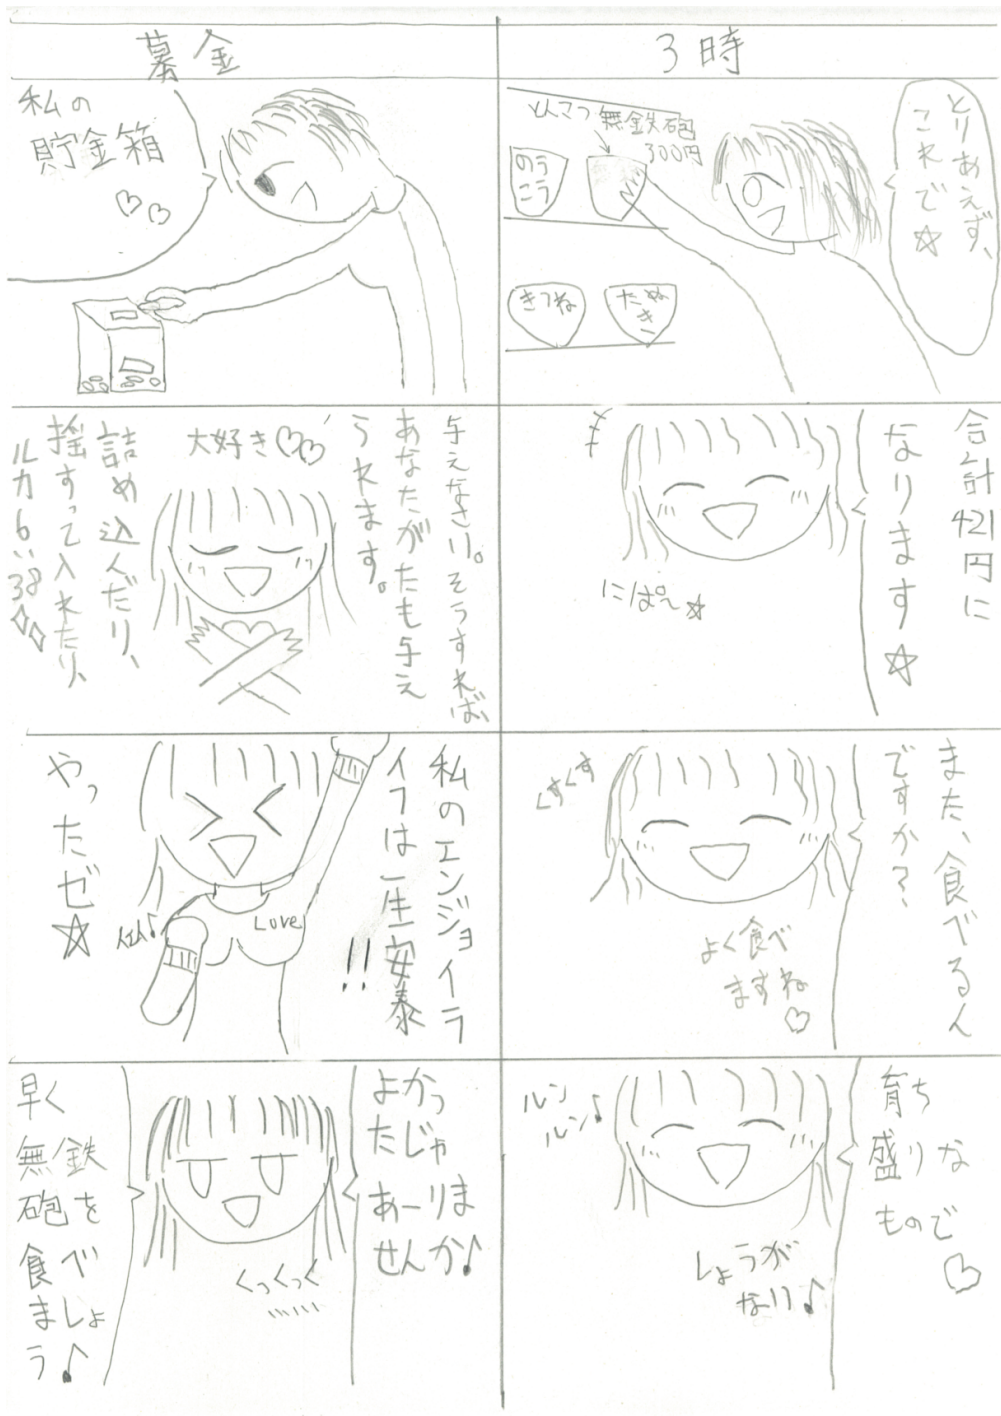 3時
とりあえず、
これで☆
とんこつ無鉄砲
300円
のう
こう
きつね
たぬ
きー
合計421円に
なります☆
にぱ〜☆
また、食べるん
ですか？
くすくす
よく食べ
ますね♡
育ち
盛りな
もので♡
ルン
ルン♪
しょうが
ない♪
募金
私の
貯金箱
♡♡
与えなさい。そうすれば、
あなたがたも与え
られます。
大好き♡♡
詰め込んだり、
揺すって入れたり、
ルカ6:38
私のエンジョイラ
イフは一生安泰
!!
やったゼ☆
Love
よかっ
たじゃ
あーりま
せんか♪
くっくっく
早く
無鉄
砲を
食べ
ましょ
う♪